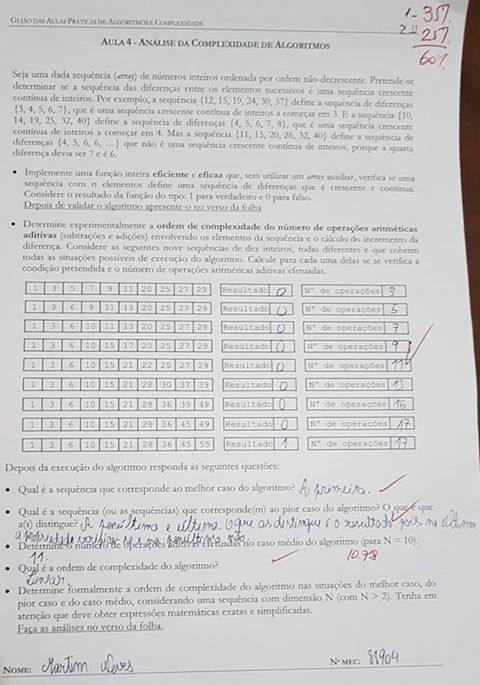 GUIÃO DAS AULAS PRÁTICAS DE ALGORITMOS E COMPLEXIDADE
1- 35%
2- 25%
60%
AULA 4 - ANÁLISE DA COMPLEXIDADE DE ALGORITMOS
Seja uma dada sequência (array) de números inteiros ordenada por ordem não-decrescente. Pretende-se
determinar se a sequência das diferenças entre os elementos sucessivos é uma sequência crescente
contínua de inteiros. Por exemplo, a sequência {12, 15, 19, 24, 30, 37} define a sequência de diferenças
{3, 4, 5, 6, 7}, que é uma sequência crescente contínua de inteiros a começar em 3. E a sequência {10,
14, 19, 25, 32, 40} define a sequência de diferenças {4, 5, 6, 7, 8}, que é uma sequência crescente
contínua de inteiros a começar em 4. Mas a sequência {11, 15, 20, 26, 32, 40} define a sequência de
diferenças {4, 5, 6, 6, ...} que não é uma sequência crescente contínua de inteiros, porque a quarta
diferença devia ser 7 e é 6.
• Implemente uma função inteira eficiente e eficaz que, sem utilizar um array auxiliar, verifica se uma
sequência com n elementos define uma sequência de diferenças que é crescente e contínua.
Considere o resultado da função do tipo: 1 para verdadeiro e 0 para falso.
Depois de validar o algoritmo apresente-o no verso da folha
• Determine experimentalmente a ordem de complexidade do número de operações aritméticas
aditivas (subtrações e adições) envolvendo os elementos da sequência e o cálculo do incremento da
diferença. Considere as seguintes nove sequências de dez inteiros, todas diferentes e que cobrem
todas as situações possíveis de execução do algoritmo. Calcule para cada uma delas se se verifica a
condição pretendida e o número de operações aritméticas aditivas efetuadas.
1 3 5 7 9 11 20 25 27 29 Resultado 0 Nº de operações 3
1 3 6 9 11 13 20 25 27 29 Resultado 0 Nº de operações 5
1 3 6 10 11 13 20 25 27 29 Resultado 0 Nº de operações 7
1 3 6 10 15 17 20 25 27 29 Resultado 0 Nº de operações 9
1 3 6 10 15 21 22 25 27 29 Resultado 0 Nº de operações 11
1 3 6 10 15 21 28 30 37 39 Resultado 0 Nº de operações 13
1 3 6 10 15 21 28 36 39 49 Resultado 0 Nº de operações 15
1 3 6 10 15 21 28 36 45 49 Resultado 0 Nº de operações 17
1 3 6 10 15 21 28 36 45 55 Resultado 1 Nº de operações 17
Depois da execução do algoritmo responda às seguintes questões:
• Qual é a sequência que corresponde ao melhor caso do algoritmo? A primeira.
• Qual é a sequência (ou as sequências) que corresponde(m) ao pior caso do algoritmo? O que é que
a(s) distingue? A penúltima e última. O que as distingue é o resultado pois na última
a propriedade verifica-se e na penúltima não.
• Determine o número de operações aditivas efetuadas no caso médio do algoritmo (para N = 10).
11. 10.78
• Qual é a ordem de complexidade do algoritmo?
Linear.
• Determine formalmente a ordem de complexidade do algoritmo nas situações do melhor caso, do
pior caso e do caso médio, considerando uma sequência com dimensão N (com N > 2). Tenha em
atenção que deve obter expressões matemáticas exatas e simplificadas.
Faça as análises no verso da folha.
NOME: Martim Neves Nº MEC: 88904